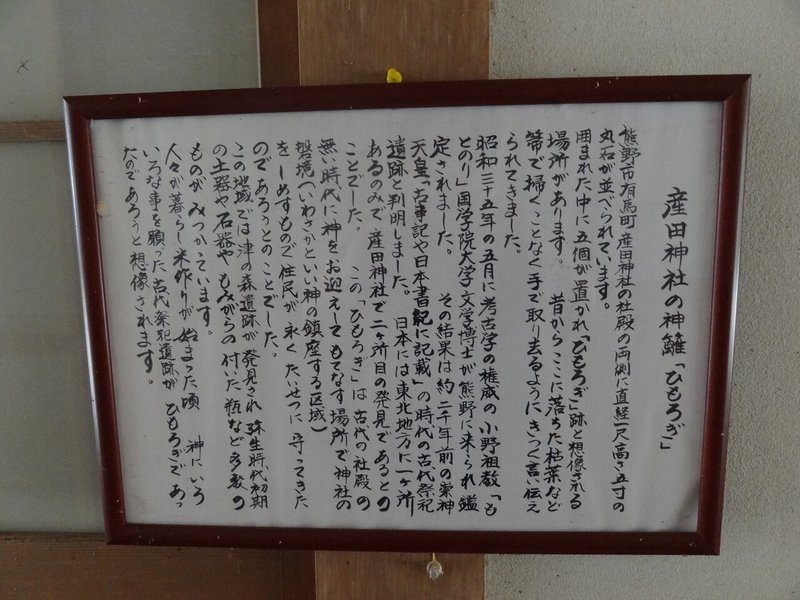 産田神社の神籬「ひもろぎ」
熊野市有馬町産田神社の社殿の両側に直経一尺高さ五寸の
丸石が並べられています。
囲まれた中に五個が置かれ「ひもろぎ」跡と想像される
場所があります 昔からここに落ちた枯葉など
箒で掃くことなく手で取り去るようにきつく言い伝え
られてきました。
昭和三十五年の五月に考古学の権威の小野祖教「も
とのり」国学院大学文学博士が熊野に来られ鑑
定されました。 その結果は約二千年前の崇神
天皇「古事記や日本書紀に記載」の時代の古代祭祀
遺跡と判明しました。 日本には東北地方に一ヶ所
あるのみで産田神社で二ヶ所目の発見であるとの
ことでした。 この「ひもろぎ」は古代の社殿の
無い時代に神をお迎えしてもてなす場所で神社の
磐境(いわさかといい神の鎮座する区域)
をしめすもので住民が永くたいせつに守ってきた
のであろうとのことでした。
この地域では津の森遺跡が発見され弥生時代初期
の土器や石器やもみがらの付いた瓶など多数の
ものがみつかっています。
人々が暮らし米作りが始まった頃 神にいろ
いろな事を願った古代祭祀遺跡がひもろぎであっ
たのであろうと想像されます。